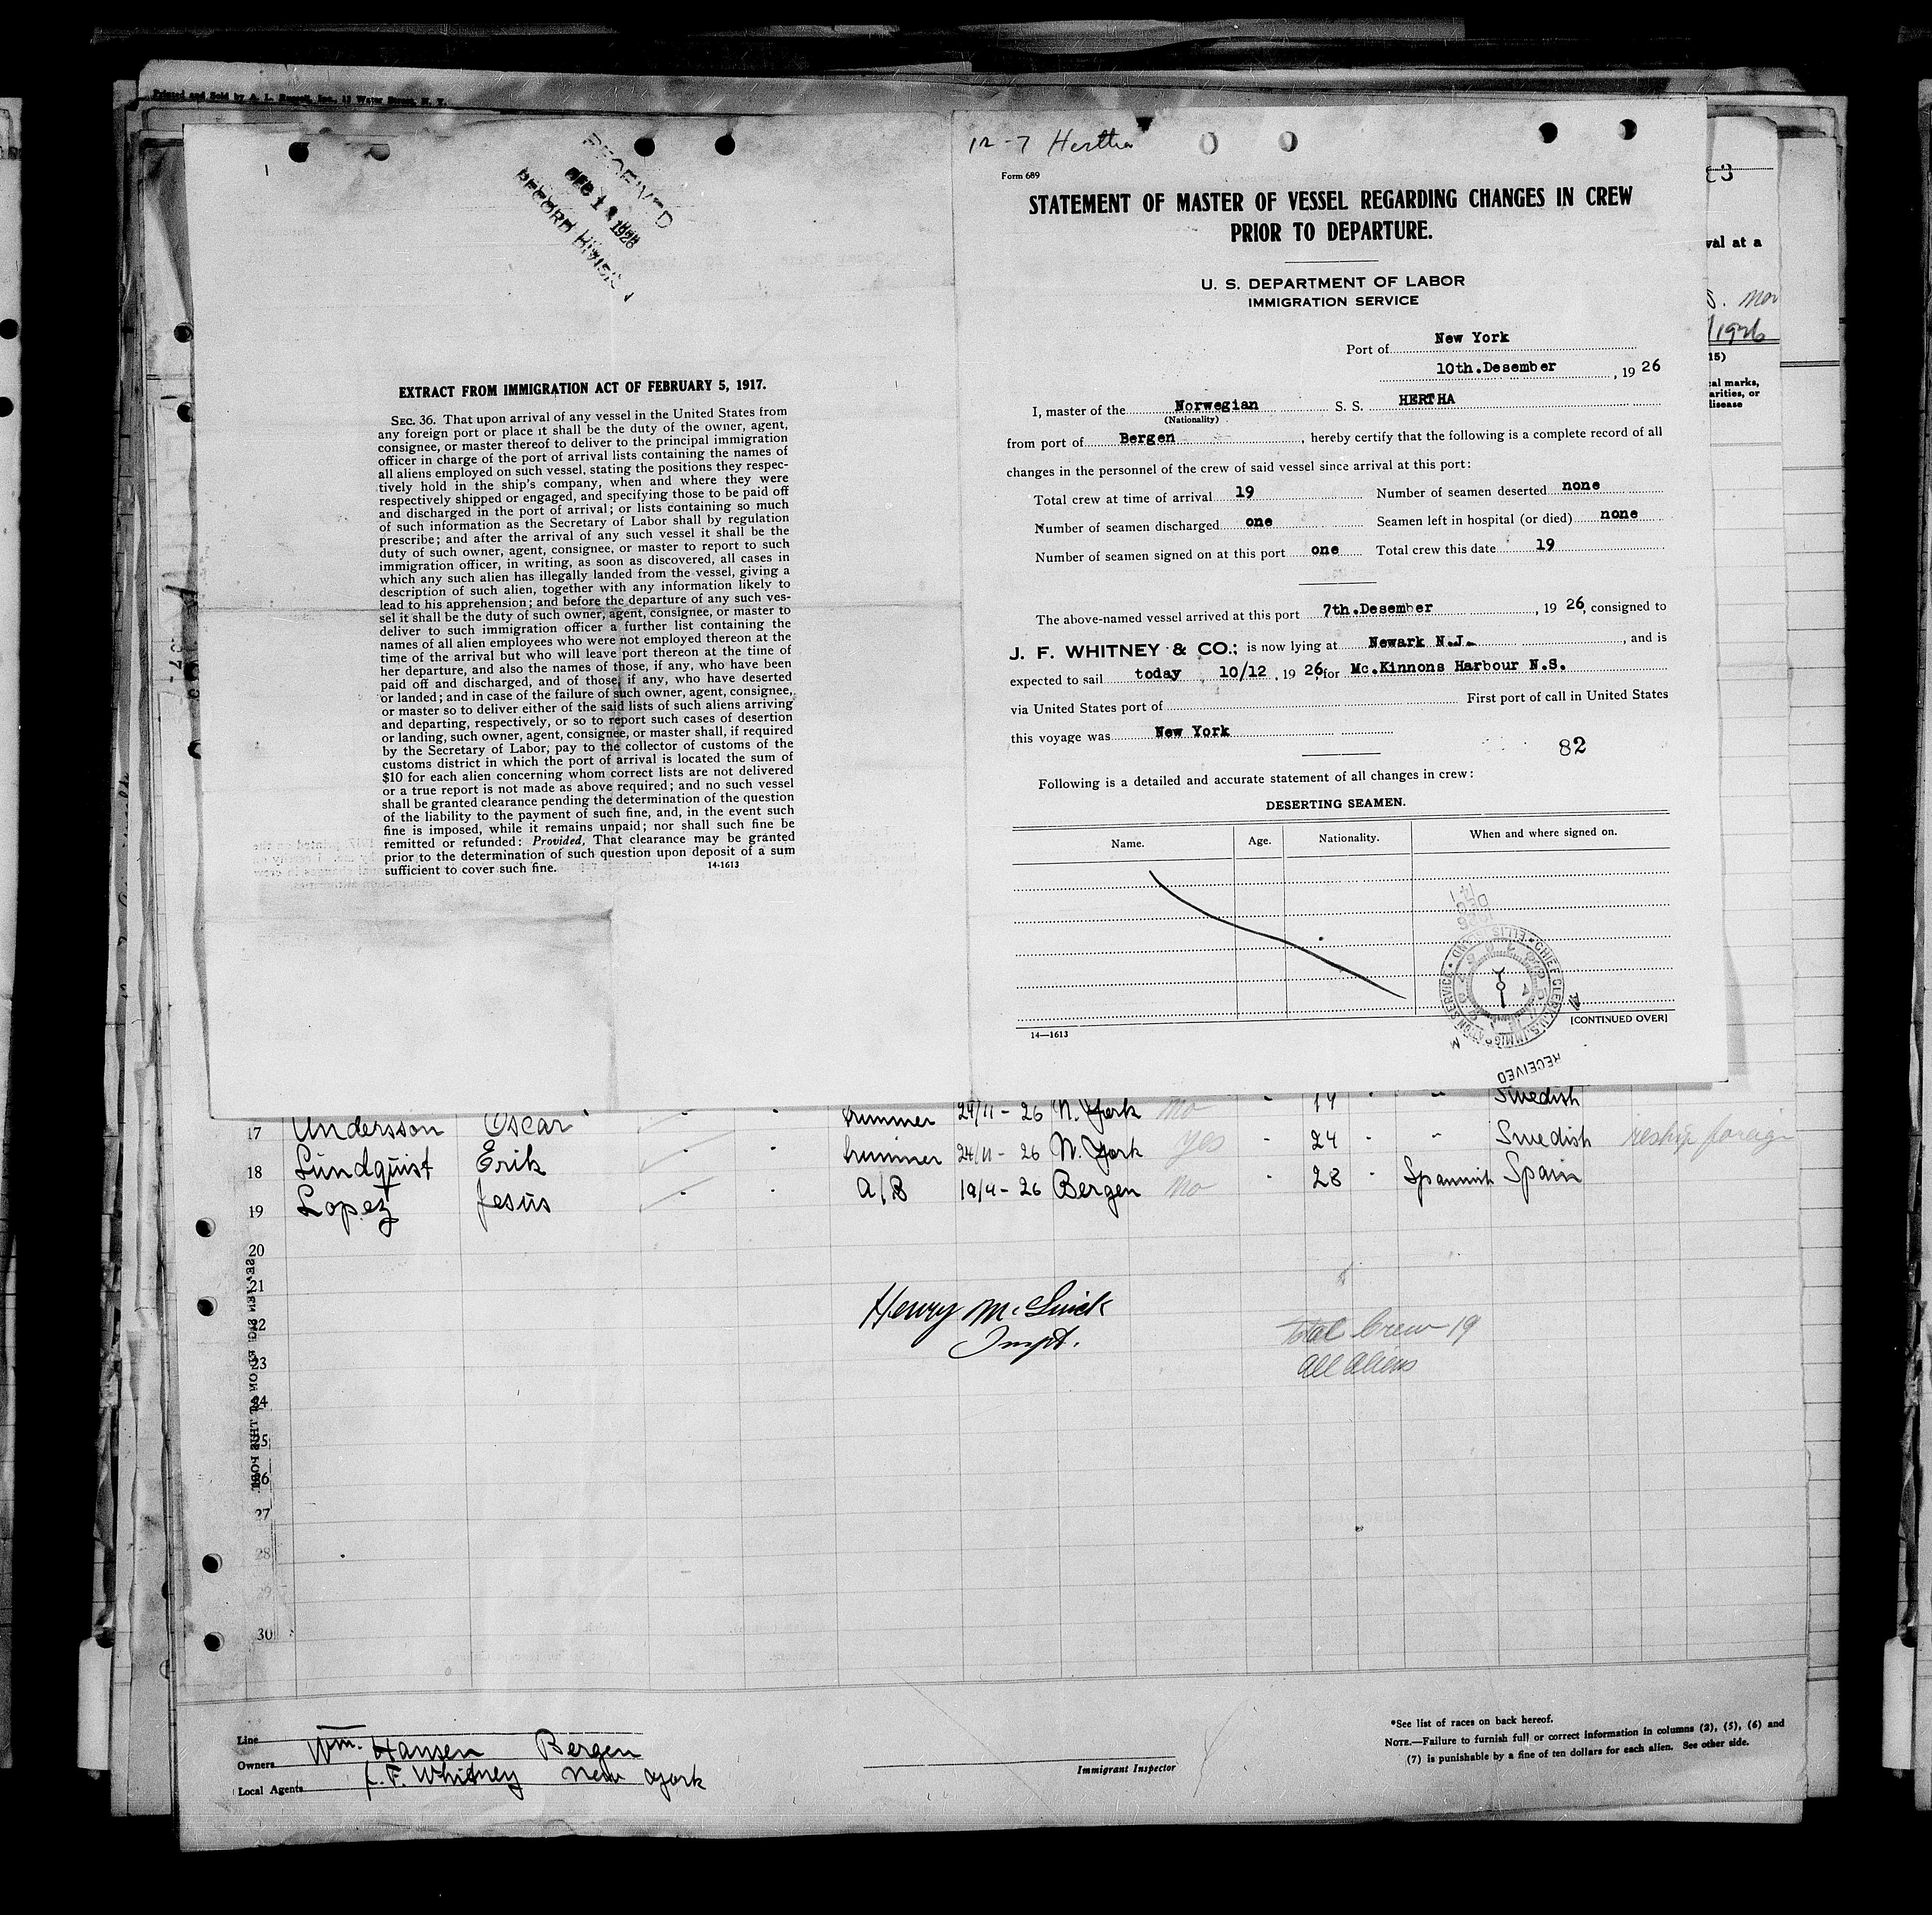 Printed and Sold by A. L. Russell, Inc., 12 Water Street, N. Y.
1
RECEIVED
DEC 1 1926
RECORD DIVISION
EXTRACT FROM IMMIGRATION ACT OF FEBRUARY 5, 1917.
SEC. 36. That upon arrival of any vessel in the United States from
any foreign port or place it shall be the duty of the owner, agent,
consignee, or master thereof to deliver to the principal immigration
officer in charge of the port of arrival lists containing the names of
all aliens employed on such vessel, stating the positions they respec-
tively hold in the ship's company, when and where they were
respectively shipped or engaged, and specifying those to be paid off
and discharged in the port of arrival; or lists containing so much
of such information as the Secretary of Labor shall by regulation
prescribe; and after the arrival of any such vessel it shall be the
duty of such owner, agent, consignee, or master to report to such
immigration officer, in writing, as soon as discovered, all cases in
which any such alien has illegally landed from the vessel, giving a
description of such alien, together with any information likely to
lead to his apprehension; and before the departure of any such ves-
sel it shall be the duty of such owner, agent, consignee, or master to
deliver to such immigration officer a further list containing the
names of all alien employees who were not employed thereon at the
time of the arrival but who will leave port thereon at the time of
her departure, and also the names of those, if any, who have been
paid off and discharged, and of those, if any, who have deserted
or landed; and in case of the failure of such owner, agent, consignee,
or master so to deliver either of the said lists of such aliens arriving
and departing, respectively, or so to report such cases of desertion
or landing, such owner, agent, consignee, or master shall, if required
by the Secretary of Labor, pay to the collector of customs of the
customs district in which the port of arrival is located the sum of
$10 for each alien concerning whom correct lists are not delivered
or a true report is not made as above required; and no such vessel
shall be granted clearance pending the determination of the question
of the liability to the payment of such fine, and, in the event such
fine is imposed, while it remains unpaid; nor shall such fine be
remitted or refunded: Provided, That clearance may be granted
prior to the determination of such question upon deposit of a sum
sufficient to cover such fine. 14-1613
12-7 Hertha
Form 689
STATEMENT OF MASTER OF VESSEL REGARDING CHANGES IN CREW
PRIOR TO DEPARTURE.
U. S. DEPARTMENT OF LABOR
IMMIGRATION SERVICE
Port of New York
10th.Desember, 19 26
I, master of the Norwegian S. S. HERTHA
(Nationality)
from port of Bergen, hereby certify that the following is a complete record of all
changes in the personnel of the crew of said vessel since arrival at this port:
Total crew at time of arrival 19 Number of seamen deserted none
Number of seamen discharged one Seamen left in hospital (or died) none
Number of seamen signed on at this port one Total crew this date 19
The above-named vessel arrived at this port 7th.Desember, 19 26, consigned to
J. F. WHITNEY & CO.; is now lying at Newark N.J., and is
expected to sail today 10/12, 19 26 for Mc.Kinnons Harbour N.S.
via United States port of First port of call in United States
this voyage was New York
82
Following is a detailed and accurate statement of all changes in crew:
DESERTING SEAMEN.
Name. Age. Nationality. When and where signed on.
DEC 14 1926
CHIEF CLERK U.S. IMMIGRATION SERVICE ELLIS ISLAND
RECEIVED
14—1613
[CONTINUED OVER]
val at a
1926
15)
cal marks,
arities, or
disease
17 Andersson Oscar trimmer 24/11 - 26 N. York no 19 " Swedish
18 Lundquist Erik trimmer 24/11 - 26 N. York yes 24 " Swedish reship foreign
19 Lopez Jesus A/B 19/4 - 26 Bergen no 28 Spannish Spain
20
21
22
23
24
25
26
27
28
29
30
Henry Mc
Inspt.
Total Crew 19
all aliens
Line
Owners Wm. Hansen Bergen
Local Agents J. F. Whitney New York
Immigrant Inspector
*See list of races on back hereof.
NOTE.—Failure to furnish full or correct information in columns (2), (5), (6) and
(7) is punishable by a fine of ten dollars for each alien. See other side.